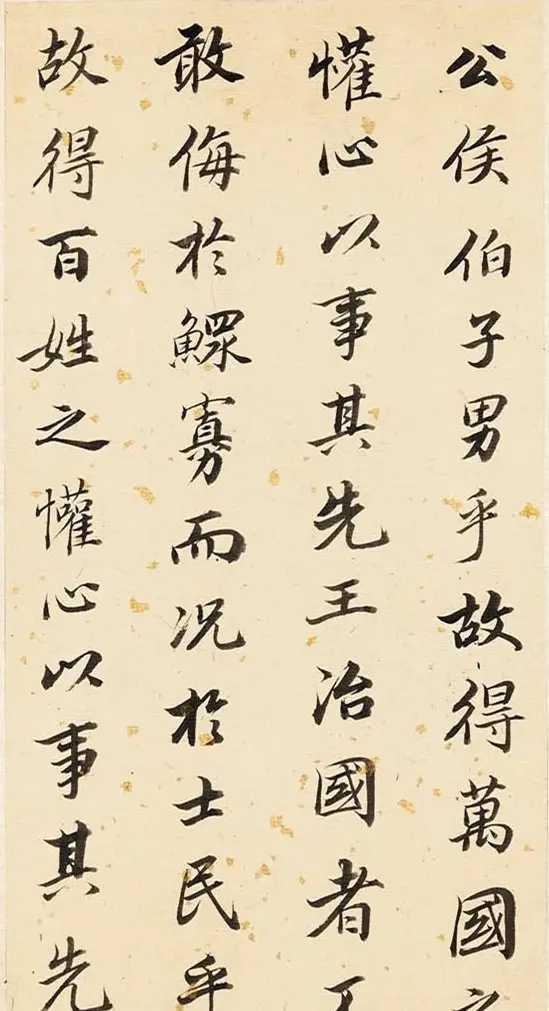 公侯伯子男乎故得萬國之
懽心以事其先王治國者不
敢侮於鰥寡而况於士民乎
故得百姓之懽心以事其先